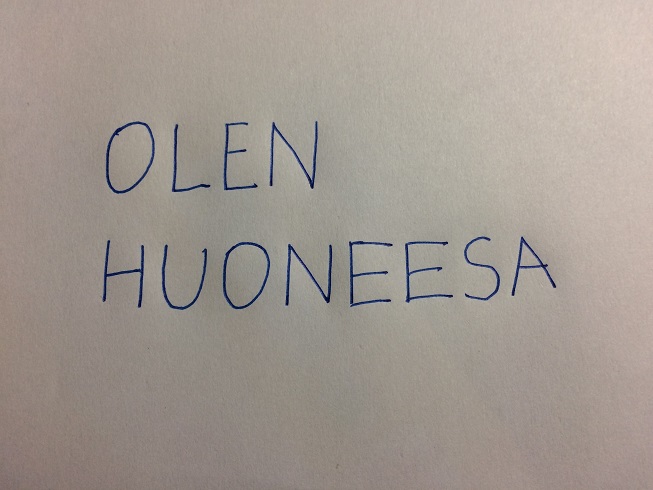 OLEN
HUONEESA